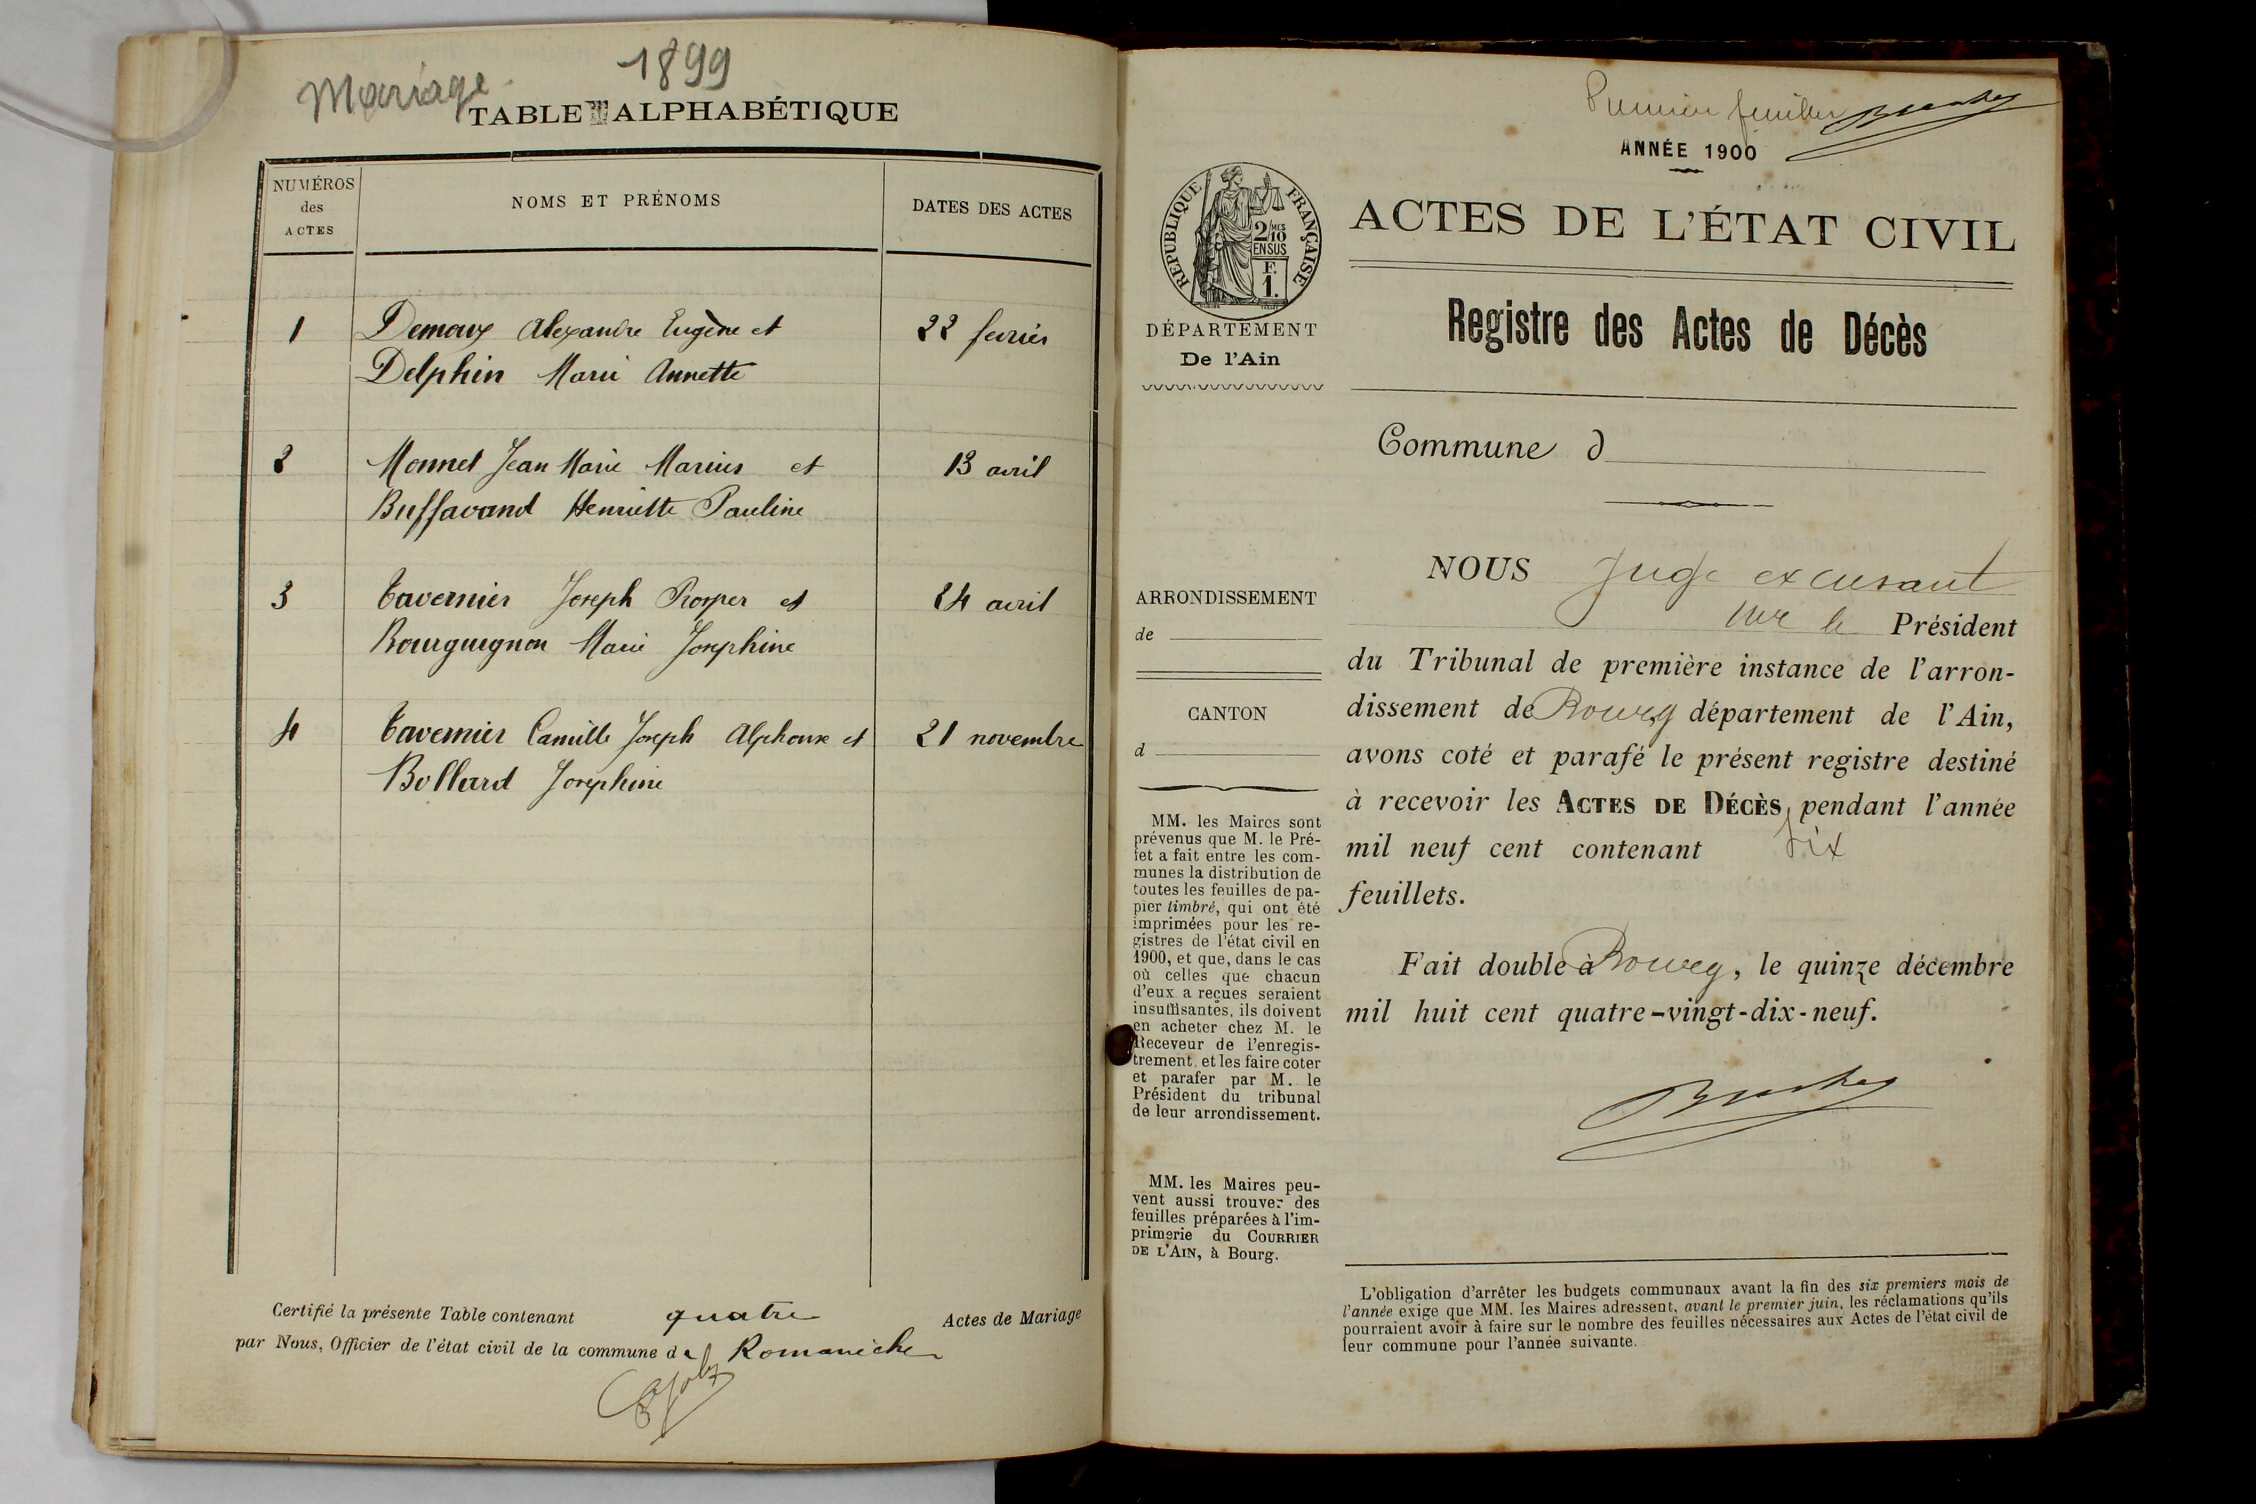 Mariage 1899
TABLE ALPHABÉTIQUE
NUMÉROS
des
ACTES
NOMS ET PRÉNOMS
DATES DES ACTES
1 Demoux Alexandre Eugène et 22 fevrier
Delphin Marie Annette
2 Monnet Jean Marie Marius et 13 avril
Buffavand Henriette Pauline
3 Tavernier Joseph Prosper et 24 avril
Bourguignon Marie Josephine
4 Tavernier Camille Joseph Alphonse et 21 novembre
Bollard Josephine
Certifié la présente Table contenant quatre Actes de Mariage
par Nous, Officier de l'état civil de la commune de Romanèche
Premier feuillet
ANNÉE 1900
RÉPUBLIQUE FRANÇAISE
2/10 MES
EN SUS
F.
1.
DÉPARTEMENT
De l'Ain
ARRONDISSEMENT
de
CANTON
d
MM. les Maires sont
prévenus que M. le Pré-
fet a fait entre les com-
munes la distribution de
toutes les feuilles de pa-
pier timbré, qui ont été
imprimées pour les re-
gistres de l'état civil en
1900, et que, dans le cas
où celles que chacun
d'eux a reçues seraient
insuffisantes, ils doivent
en acheter chez M. le
Receveur de l'enregis-
trement, et les faire coter
et parafer par M. le
Président du tribunal
de leur arrondissement.
MM. les Maires peu-
vent aussi trouver des
feuilles préparées à l'im-
primerie du COURRIER
DE L'AIN, à Bourg.
ACTES DE L'ÉTAT CIVIL
Registre des Actes de Décès
Commune d
NOUS Juge excusant
Mr le Président
du Tribunal de première instance de l'arron-
dissement de Bourg département de l'Ain,
avons coté et parafé le présent registre destiné
à recevoir les ACTES DE DÉCÈS, pendant l'année
mil neuf cent contenant Six
feuillets.
Fait double à Bourg, le quinze décembre
mil huit cent quatre-vingt-dix-neuf.
L'obligation d'arrêter les budgets communaux avant la fin des six premiers mois de
l'année exige que MM. les Maires adressent, avant le premier juin, les réclamations qu'ils
pourraient avoir à faire sur le nombre des feuilles nécessaires aux Actes de l'état civil de
leur commune pour l'année suivante.